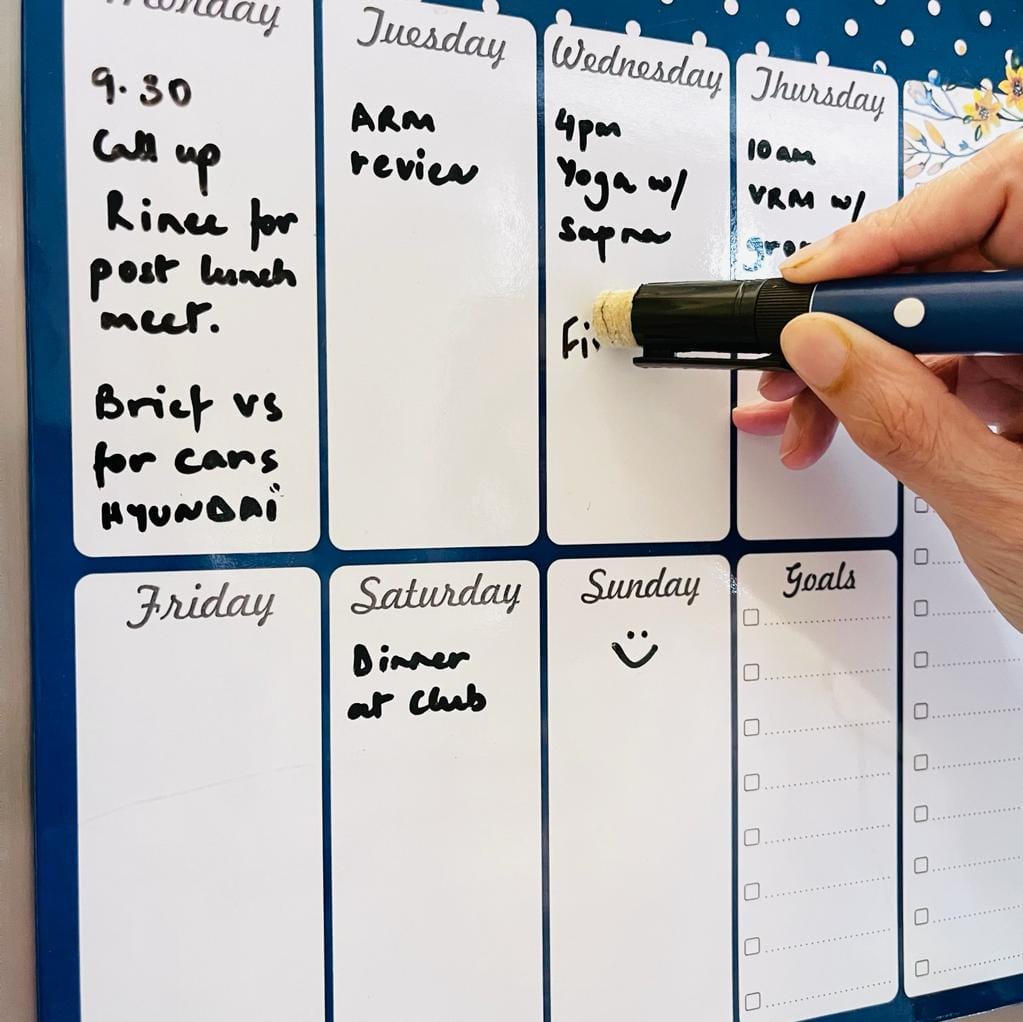 Monday
9.30
Call up
Rinee for
post lunch
meet.
Brief vs
for cars
HYUNDAI
Tuesday
ARM
review
Wednesday
4pm
Yoga w/
Sapna
Thursday
10am
VRM w/
Friday
Saturday
Dinner
at Club
Sunday
Goals